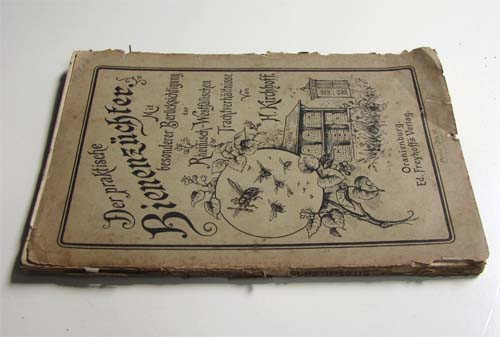 Der praktische
Bienenzüchter.
Mit
besonderer Berücksichtigung
der
Rheinisch-Westfälischen
Trachtverhältnisse
Von
H. Kirchhoff.
Oranienburg.
Ed. Freyhoff's Verlag.